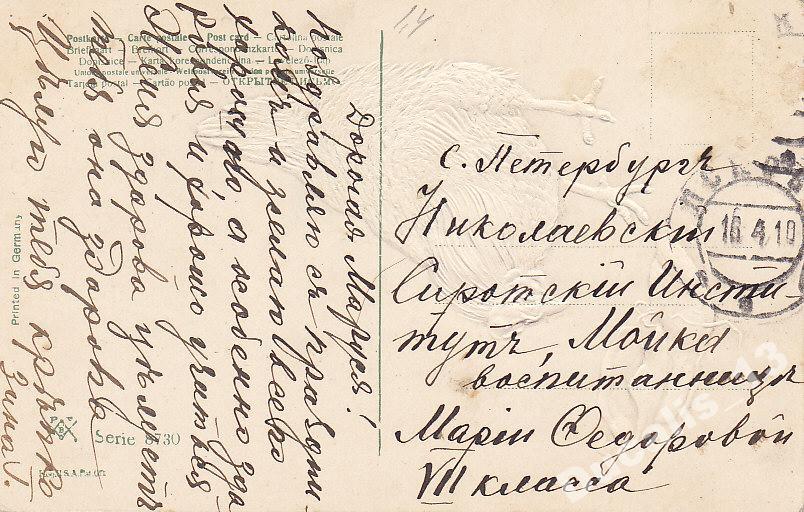 14
Postkarte — Carte postale — Post card — Cartolina postale
Briefkaart — Brefkort — Correspondenzkarte — Dopisnica
Dopisnice — Karta korespondencyjna — Levelező-lap
Union postale universelle — Weltpostverein — Unione postale universale
Tarjeta postal — Cartão postal — ОТКРЫТОЕ ПИСЬМО
Дорогая Маруся!
Поздравляю съ праздни-
комъ и желаю всего
хорошаго а особенно здо
ровья и хорошо учиться
Женя здорова цѣлуетъ
тебя она здорова
Цѣлую тебя крѣпко
Зина.
Printed in Germany
Serie 8730
с. Петербургъ
Николаевскій
Сиротскій Инсти-
тутъ, Мойка
воспитанницѣ
Маріи Федоровой
VII класса
16 4 10